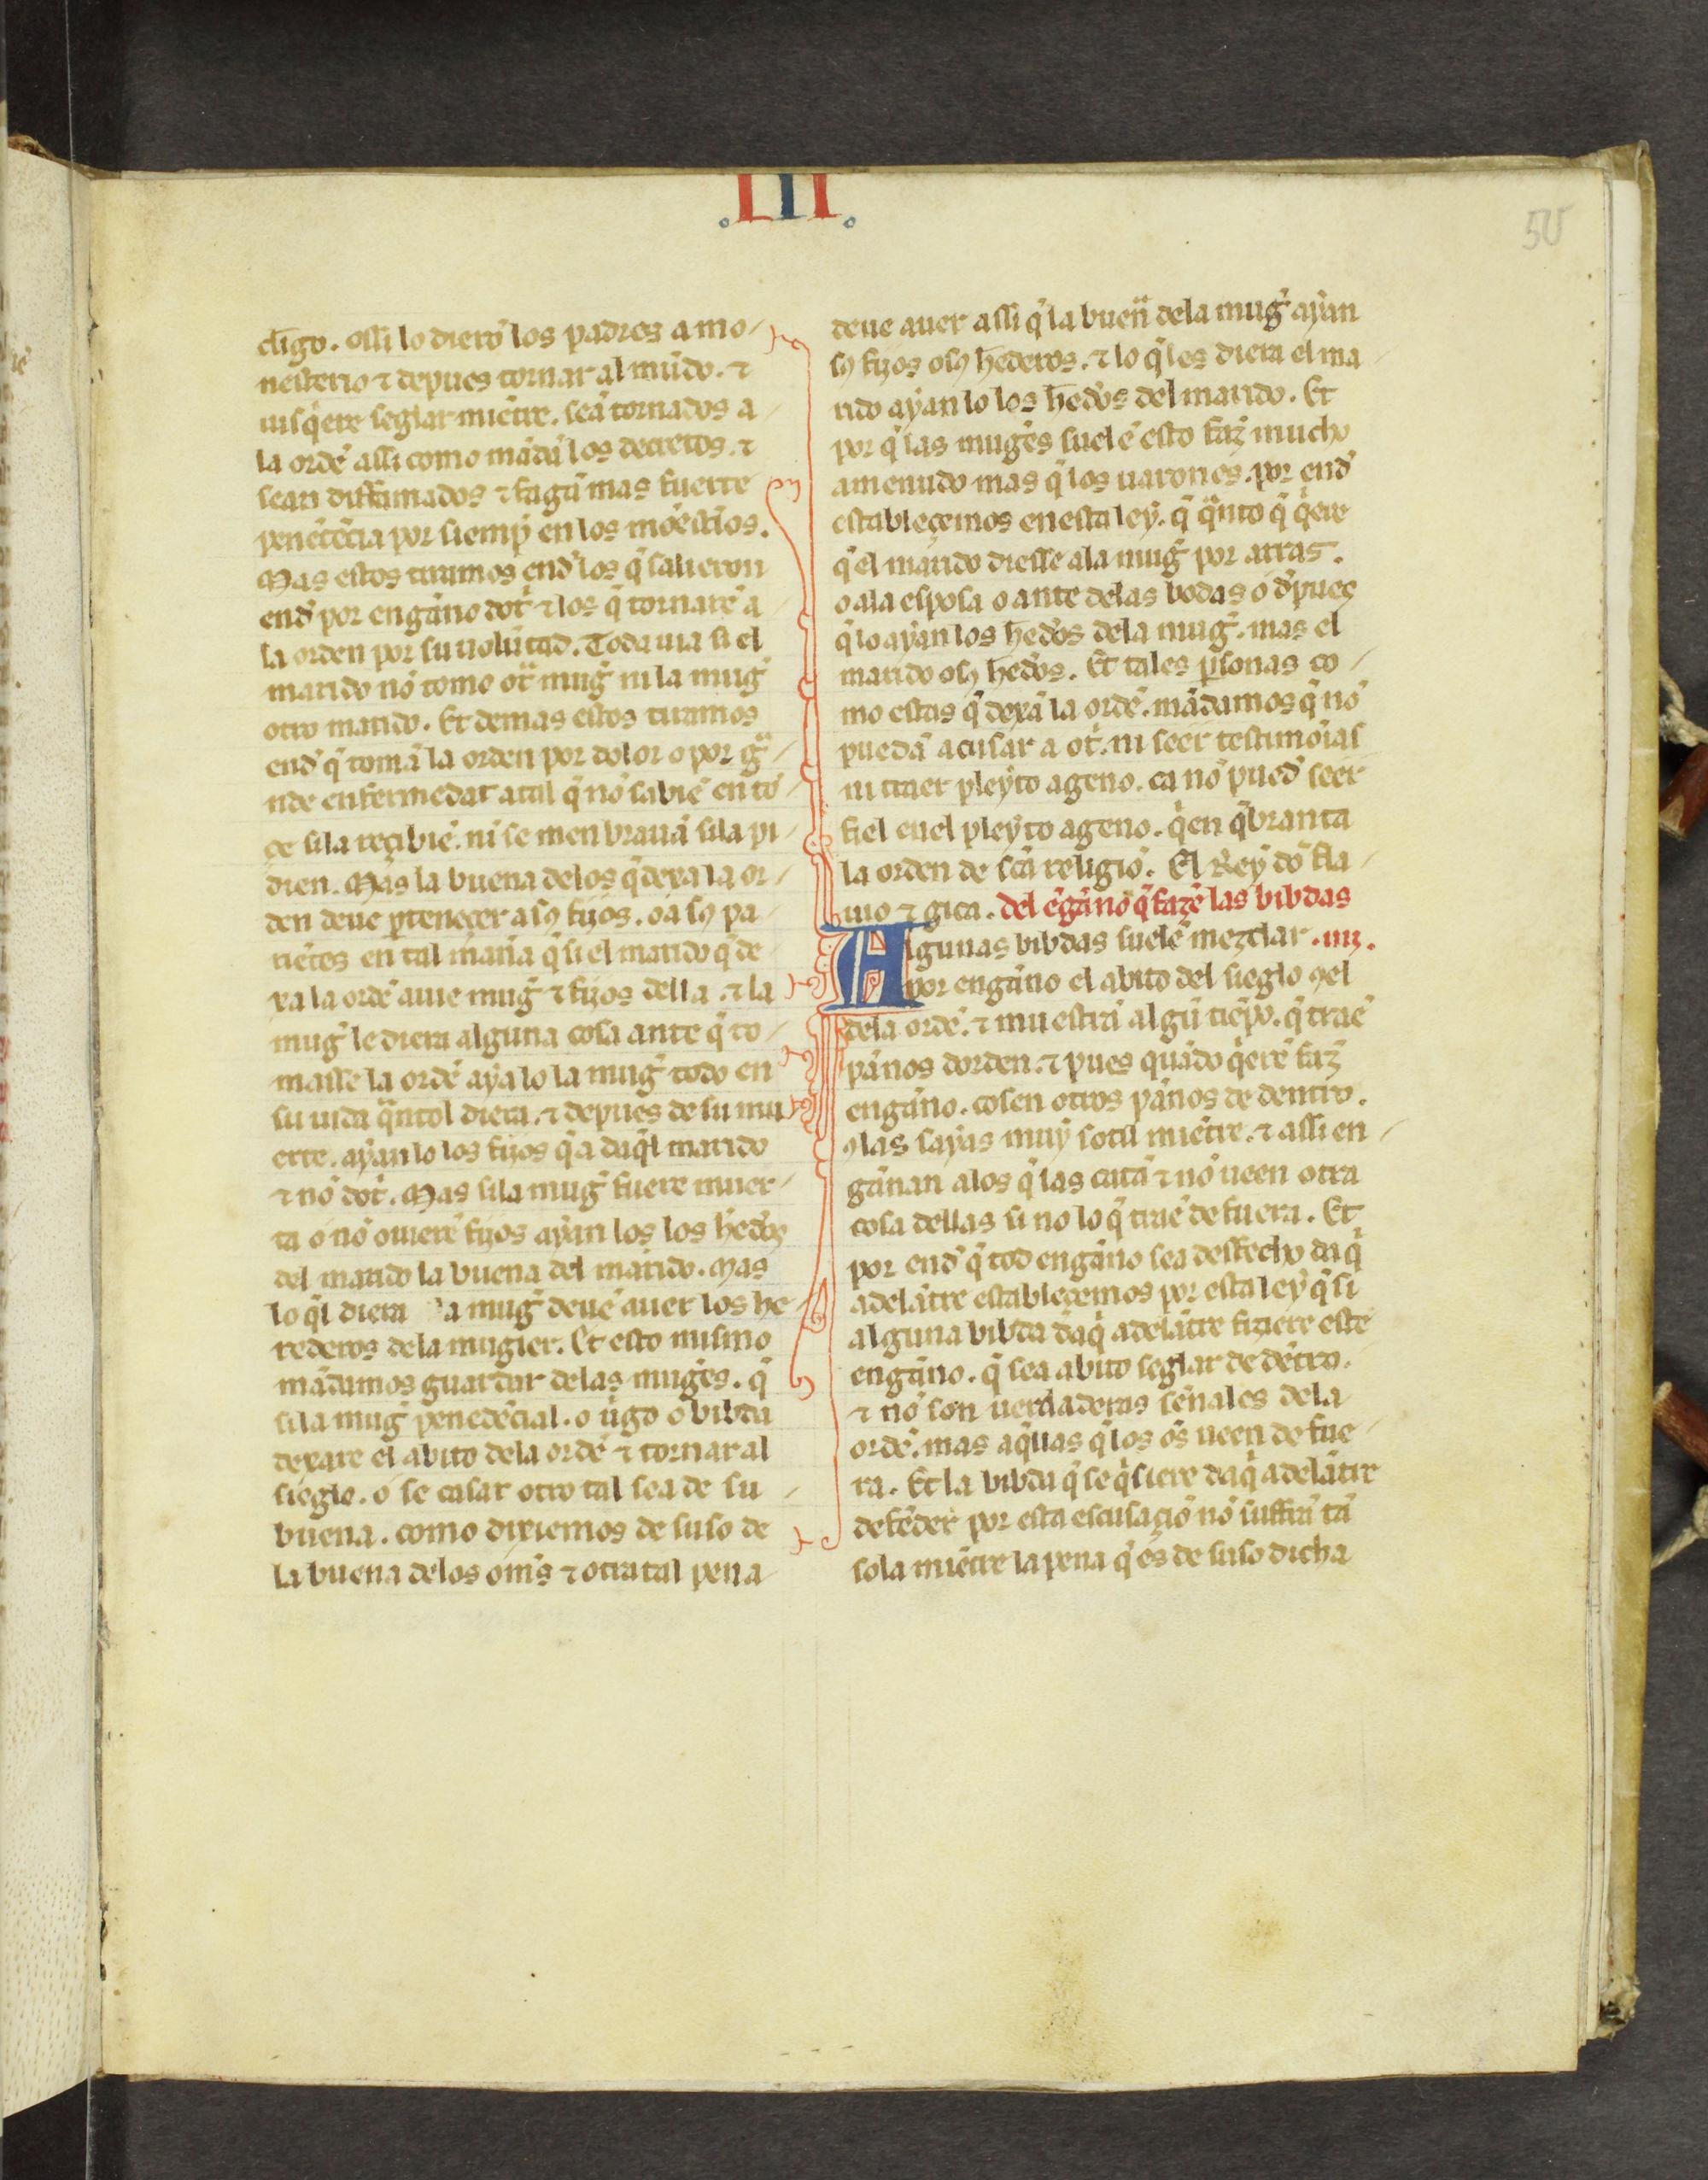 .III.
50
cligo. assi lo dierō los padres a mo
nesterio ⁊ depues tornar al mūdo. ⁊
uisq̄ere seglar miētre. seā tornados a
la ordē assi como mādā los decretos. ⁊
sean diffamados ⁊ fagā mas fuerte
penētēcia por siemp̄ en los mōestios.
Mas estos tiramos end̄ los q̄ salieron
end̄ por engāno dot̄ ⁊ los q̄ tornarē a
la orden por su uolūtad. Toda uia si el
marido nō tome ot̄ muḡ ni la muḡ
otro marido. Et demas estos tiramos
end̄ q̄ tomā la orden por dolor o por gͣ
nde enfermedat atal q̄ nō sabiē en tō
çe si la reçibiē. ni se menbrauā si la pi
dien. Mas la buena de los q̄ dexa la or
den deue ꝑteneçer a sꝯ fijos. o a sꝯ pa
riētes en tal maña q̄ si el marido q̄ de
xa la ordē auie muḡ ⁊ fijos della. ⁊ la
muḡ le diera alguna cosa ante q̄ to
masse la ordē aya lo la muḡ todo en
su uida q̄ntol diera. ⁊ depues de su mu
erte. ayan lo los fijos q̄ a daq̄l marido
⁊ nō dot̄. Mas si la muḡ fuere muer
ta o nō ouierē fijos ayan los los hed̄os
del marido la buena del marido. Mas
lo q̄l diera la muḡ deuē auer los he
rederos de la mugier. Et esto mismo
mādamos guardar de las muḡes. q̄
si la muḡ penedēcial. o ūgē o bibda
dexare el abito de la ordē ⁊ tornar al
sieglo. o se casar otro tal sea de su
buena. como dixiemos de suso de
la buena de los om̄s ⁊ otra tal pena
deue auer assi q̄ la buenͣ de la muḡ ayan
sꝯ fijos o sꝯ hederos. ⁊ lo q̄ les diera el ma
rido ayan lo los hed̄os del marido. Et
por q̄ las muḡes suelē esto faz̄ mucho
amenudo mas q̄ los uarones. por end̄
establecemos en esta ley. q̄ q̄nto q̄ q̄ere
q̄ el marido diesse a la muḡ por arras.
o a la esposa o ante de las bodas o d̄pues
q̄ lo ayan los hed̄os de la muḡ. mas el
marido o sꝯ hed̄os. Et tales ꝑsonas co
mo estas q̄ dexā la ordē. mādamos q̄ nō
puedā acusar a ot̄. ni seer testimoīas
ni traer pleyto ageno. ca nō pued̄ seer
fiel en el pleyto ageno. q̄en q̄branta
la orden de sc̄a religiō. El Rey dō fla
uio ⁊ gica. del ēgāno q̄ fazē las bibdas
Algunas bibdas suelē mezclar .iiij.
por engāno el abito del sieglo ꝯ el
de la ordē. ⁊ muestrā algū tiēpo. q̄ traē
pānos dorden. ⁊ pues quādo q̄erē faz̄
engāno. cosen otros pānos de dentro.
ꝯ las sayas muy sotil miētre. ⁊ assi en
gānan a los q̄ las catā ⁊ nō ueen otra
cosa dellas si no lo q̄ traē de fuera. Et
por end̄ q̄ tod engāno sea desfecho daq̄
adelātre establecemos por esta ley q̄ si
alguna bibda daq̄ adelātre fiziere este
engāno. q̄ sea abito seglar de dētro.
⁊ nō son uerdaderas sēnales de la
ordē. mas aq̄llas q̄ los os̄ ueen de fue
ra. Et la bibda q̄ se q̄siere daq̄ adelātre
defēder por esta escusaçiō nō suffrā tā
sola miētre la pena q̄ es de suso dicha